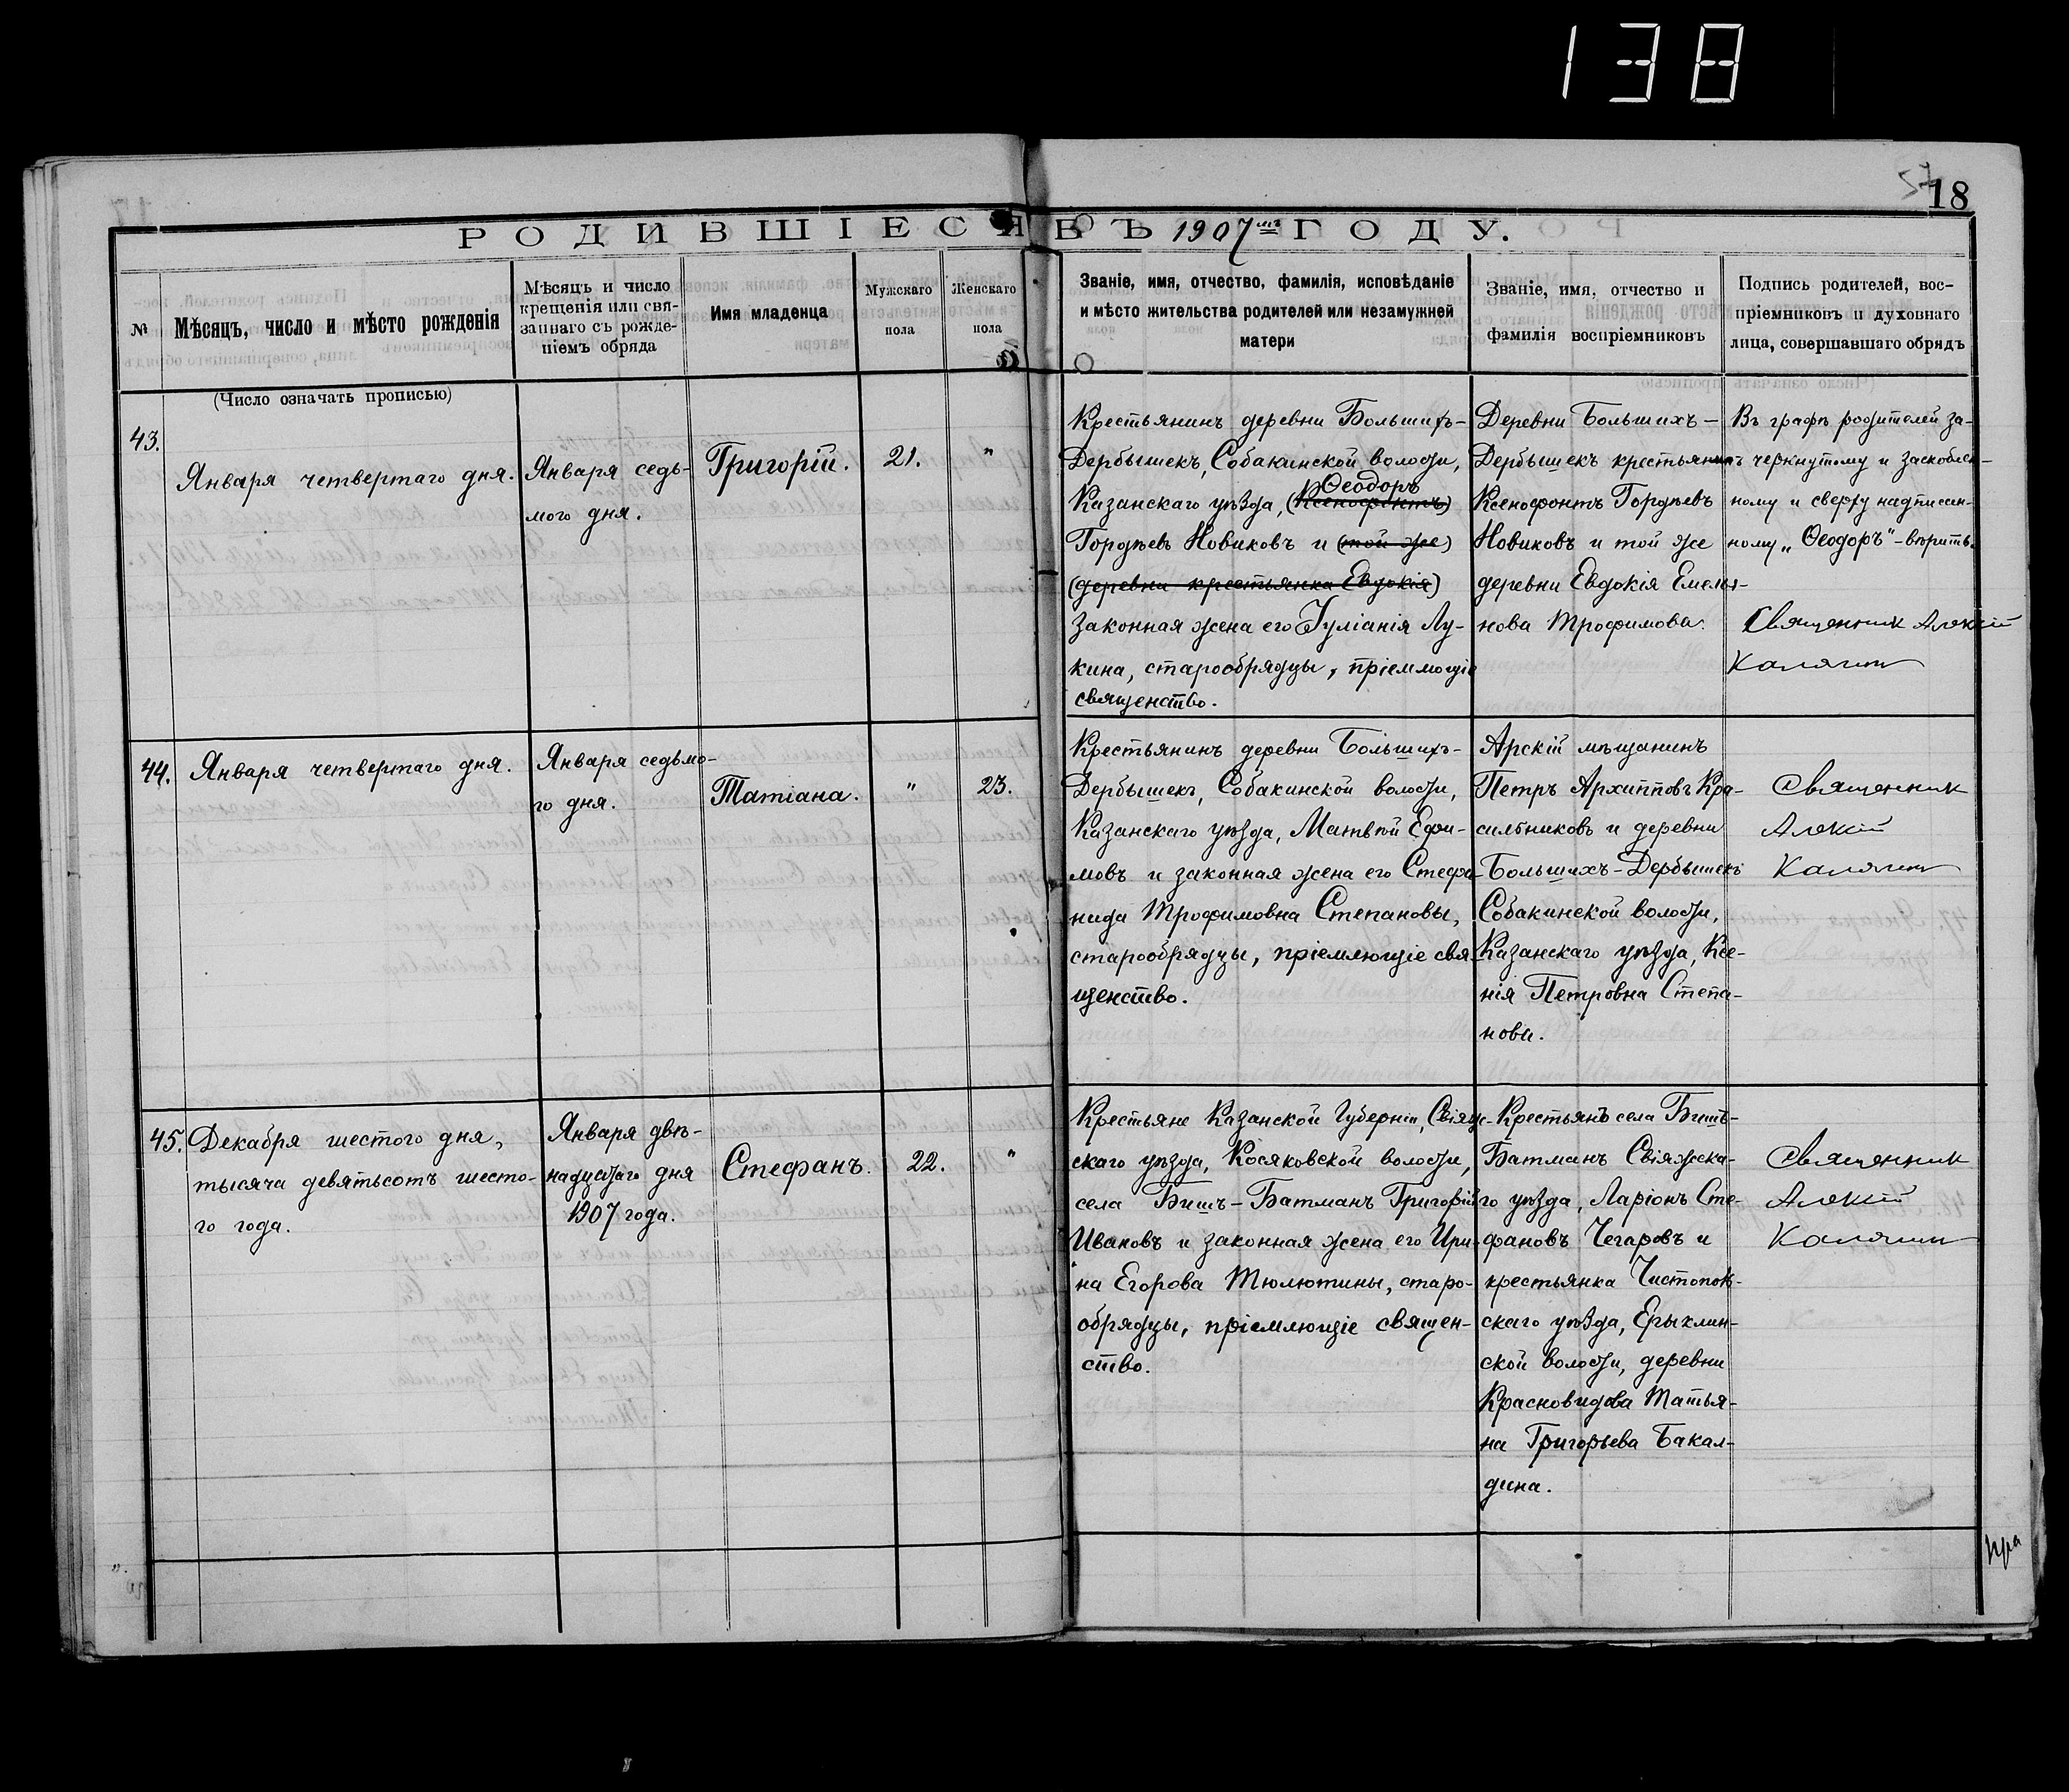 138
57
18
РОДИВШІЕСЯ ВЪ 1907мъ ГОДУ.
№
Мѣсяцъ, число и мѣсто рожденія
Мѣсяцъ и число
крещенія или свя-
заннаго съ рожде-
ніемъ обряда
Имя младенца
Мужскаго
пола
Женскаго
пола
Званіе, имя, отчество, фамилія, исповѣданіе
и мѣсто жительства родителей или незамужней
матери
Званіе, имя, отчество и
фамилія воспріемниковъ
Подпись родителей, вос-
пріемниковъ и духовнаго
лица, совершавшаго обрядъ
(Число означать прописью)
43.
Января четвертаго дня.
Января седь-
мого дня.
Григорій.
21.
"
Крестьянинъ деревни Большихъ-
Дербышекъ, Собакинской волости,
Ѳеодоръ
Казанскаго уѣзда, (Ксенофонтъ)
Гордѣевъ Новиковъ и (той же)
(деревни крестьянка Евдокія)
законная жена его Іуліанія Лу-
кина, старообрядцы, пріемлющіе
священство.
Деревни Большихъ-
Дербышекъ крестьянинъ
Ксенофонтъ Гордѣевъ
Новиковъ и той же
деревни Евдокія Емелья-
нова Трофимова.
Въ графѣ родителей за-
черкнутому и заскоблен-
ному и сверху надписан-
ному „Ѳеодоръ" - вѣрить.
Священникъ Алексій
Калягин
44.
Января четвертаго дня.
Января седьмо-
го дня.
Татіана.
"
23.
Крестьянинъ деревни Большихъ-
Дербышекъ, Собакинской волости,
Казанскаго уѣзда, Матвѣй Ефи-
мовъ и законная жена его Стефа-
нида Трофимовна Степановы,
старообрядцы, пріемлющіе свя-
щенство.
Арскій мѣщанинъ
Петръ Архипповъ Кра-
сильниковъ и деревни
Большихъ-Дербышекъ
Собакинской волости,
Казанскаго уѣзда, Ксе-
нія Петровна Степа-
нова.
Священник
Алексій
Калягин
45.
Декабря шестого дня,
тысяча девятьсотъ шесто-
го года.
Января двѣ-
надцатаго дня
1907 года.
Стефанъ.
22.
"
Крестьяне Казанской Губерніи, Свіяж-
скаго уѣзда, Косяковской волости,
села Бишъ-Батманъ Григорій
Ивановъ и законная жена его Ири-
на Егорова Тюлютины, старо-
обрядцы, пріемлющіе священ-
ство.
Крестьянъ села Бишъ-
Батманъ Свіяжска-
го уѣзда, Ларіонъ Сте-
фановъ Чегаровъ и
крестьянка Чистополь-
скаго уѣзда, Ерыклин-
ской волости, деревни
Красновидова Татья-
на Григорьева Бакал-
дина.
Священник
Алексій
Калягин